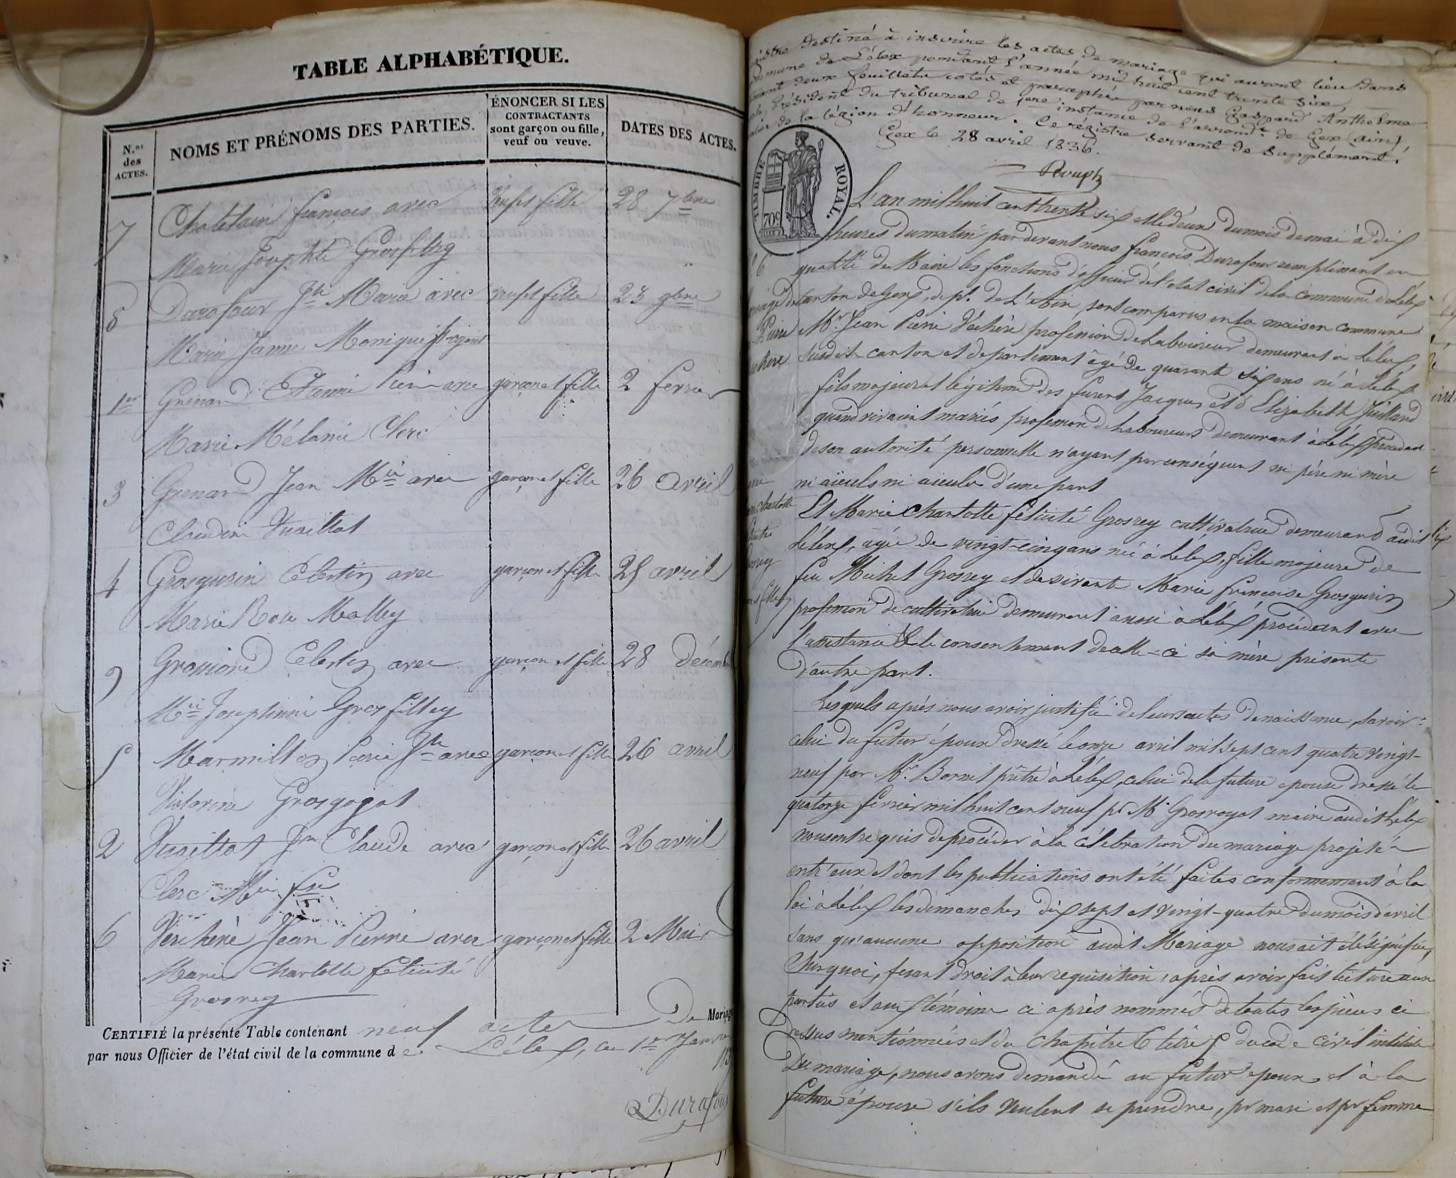 TABLE ALPHABÉTIQUE.
N.os des ACTES.
NOMS ET PRÉNOMS DES PARTIES.
ÉNONCER SI LES CONTRACTANTS sont garçon ou fille, veuf ou veuve.
DATES DES ACTES.
7 Chatelain françois avec veuf et fille 28 7bre
Marie Josephte Grosfilley
8 Durafour Jh Marie avec veuf et fille 23 9bre
Marie Jeanne Monique
1er Grenard Etienne Pierre avec garçon et fille 2 fevrier
Marie Mélanie Clerc
3 Grenard Jean Mie avec garçon et fille 26 avril
Claudine Tuaillat
4 Grosgurin Celestin avec garçon et fille 28 avril
Marie Rose Molley
9 Grossiord Celestin avec garçon et fille 28 décemb
Mie Josephine Grosfilley
5 Marmillon Pierre Jh avec garçon et fille 26 avril
Victorine Grosgojat
2 Tuaillat Jn Claude avec garçon et fille 26 avril
Clerc Mie
6 Vésichère Jean Pierre avec garçon et fille 2 Mai
Marie Charlotte felicité
Grosrey
CERTIFIÉ la présente Table contenant neuf actes de Mariage
par nous Officier de l'état civil de la commune de Lélex, ce 1er Janvier
Durafour
destiné à inscrire les actes de mariage qui auront lieu dans
commune de Lélex pendant l'année mil huit cent trente six,
deux feuillets cotés et paraphés par nous Gaspard Anthelme
Président du tribunal de 1ere instance de l'arrondt de Gex (ain),
de la légion d'honneur. Ce régistre servant de supplément.
Gex le 28 avril 1836.
TIMBRE ROYAL.
70c
L'an mil huit cent trente six et le deux du mois de mai à dix
heures du matin par devant nous françois Durafour remplissant en
qualité de Maire les fonctions d'officier de l'état civil de la commune de Lélex
canton de Gex, dépt. de L'Ain, sont comparus en la maison commune
Mr. Jean Pierre Vésichère profession de laboureur demeurant à Lélex
susdit canton et département agé de quarante six ans né à Lélex
fils majeur et légitime des furent Jacques et d'Elizabeth Juilland
quand vivaient mariés profession de laboureurs demeurant à Lélex procédant
de son autorité personnelle n'ayant par conséquent ni père ni mère
ni aïeuls ni aïeules d'une part
Et Marie Charlotte félicité Grosrey cultivatrice demeurand audit
Lélex, agée de vingt-cinq ans née à Lelex, fille majeure de
feu Michel Grosrey et de vivante Marie françoise Grosgurin
profession de cultivatrice demeurant aussi à Lélex procédant avec
l'assistance et le consentement de celle-ci sa mère présente
d'autre part.
Lesquels après nous avoir justifié de leurs actes de naissance, savoir:
celui du futur époux dressé le onze avril mil sept cent quatre vingt-
neuf par Mr. Bornet prêtre à Lélex, celui de la future épouse dressé le
quatorze février mil huit cent neuf pr Mr Grosgojat maire audit Lélex
nous ont requis de procéder à la célébration du mariage projeté
entr'eux et dont les publications ont été faites conformément à la
loi à Lélex les dimanches dix sept et vingt-quatre du mois d'avril
sans qu'aucune opposition audit Mariage nous ait été signifiée,
C'est pourquoi, fesant droit à leur requisition, après avoir fait lecture aux
parties et aux témoins ci après nommés de toutes les pièces ci
dessus mentionnées et du chapitre 6 titre 5 du code civil intitulé
Du mariage, nous avons demandé au futur époux et à la
future épouse s'ils veulent se prendre, pr mari et pr femme